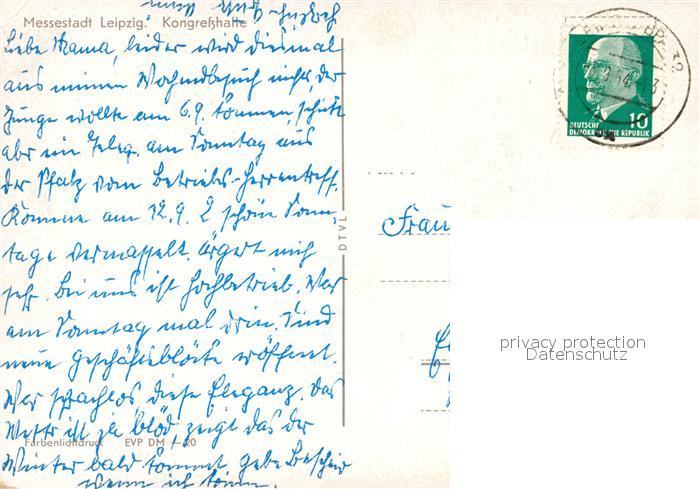 Messestadt Leipzig. Kongreßhalle
Liebe Mama, leider wird diesmal
aus meinem Wochendbesuch nichts, der
Junge wollte am 6.9. kommen, schickt
abr ein Teleg. am Sonntag aus
der Pfalz vom Betriebs-Herrentreff.
Komme am 12.9. 2 schöne Sonn-
tage vermasselt. Ärgert mich
sehr. Bei uns ist Hochbetrieb. War
am Sonntag mal drin. Sind
neue Geschäftsblöcke eröffnet.
War sprachlos diese Eleganz. Das
Wetter ist ja blöd, zeigt das der
Farbenlichtdruck EVP DM -,20
Winter bald kommt. Gebe Bescheid
wenn ich komme.
Herzlich
DTVL
10
DEUTSCHE
DEMOKRATISCHE REPUBLIK
Frau
privacy protection
Datenschutz